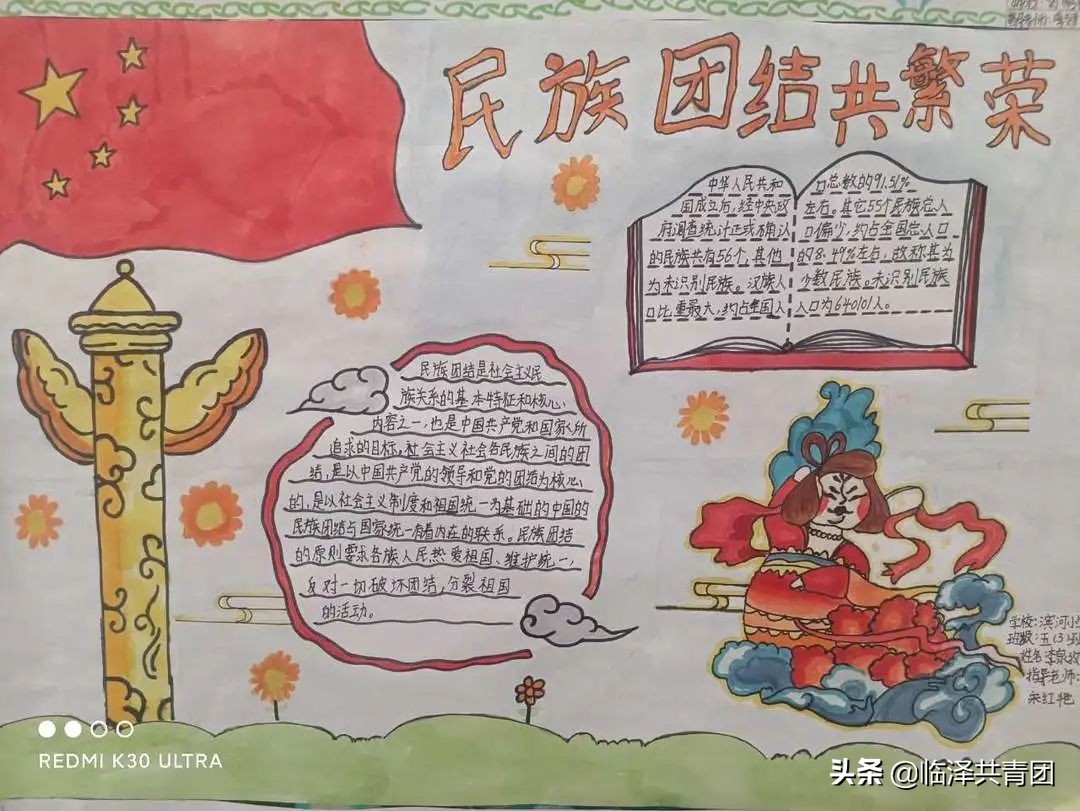 民族团结共繁荣
中华人民共和
国成立后,经中央政
府调查统计正或确认
的民族共有56个,其他
为未识别民族。汉族人
口比重最大,约占全国人
口总数的91.51%
左右。其它55个民族总人
口偏少,约占全国总人口
的8.49%左右,故称其为
少数民族。未识别民族
人口为640101人。
民族团结是社会主义民
族关系的基本特征和核心
内容之一,也是中国共产党和国家所
追求的目标,社会主义社会各民族之间的团
结,是以中国共产党的领导和党的团结为核心
的,是以社会主义制度和祖国统一为基础的中国的
民族团结与国家统一有着内在的联系。民族团结
的原则要求各族人民热爱祖国、维护统一,
反对一切破坏团结,分裂祖国
的活动。
学校:滨河小
班级:五(3)班
姓名
指导老师:
宋红艳
REDMI K30 ULTRA
头条 @临泽共青团